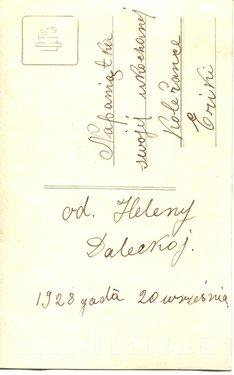 Na pamiątkę
swojej ukochanej
Koleżance
Eriki
od. Heleny
Daleckoj.
1928 goda 20 września